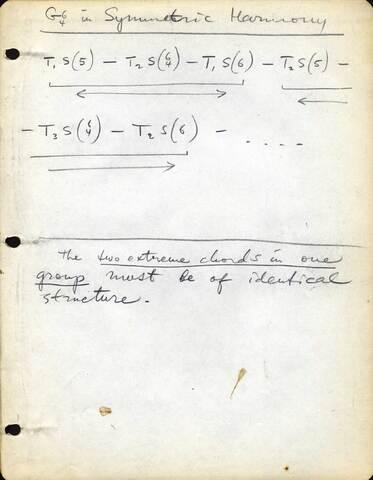 G6/4 in Symmetric Harmony
T₁ S(5) – T₂ S(6/4) – T₁ S(6) – T₂ S(5) –
– T₃ S(6/4) – T₂ S(6) – . . . .
The two extreme chords in one
group must be of identical
structure.